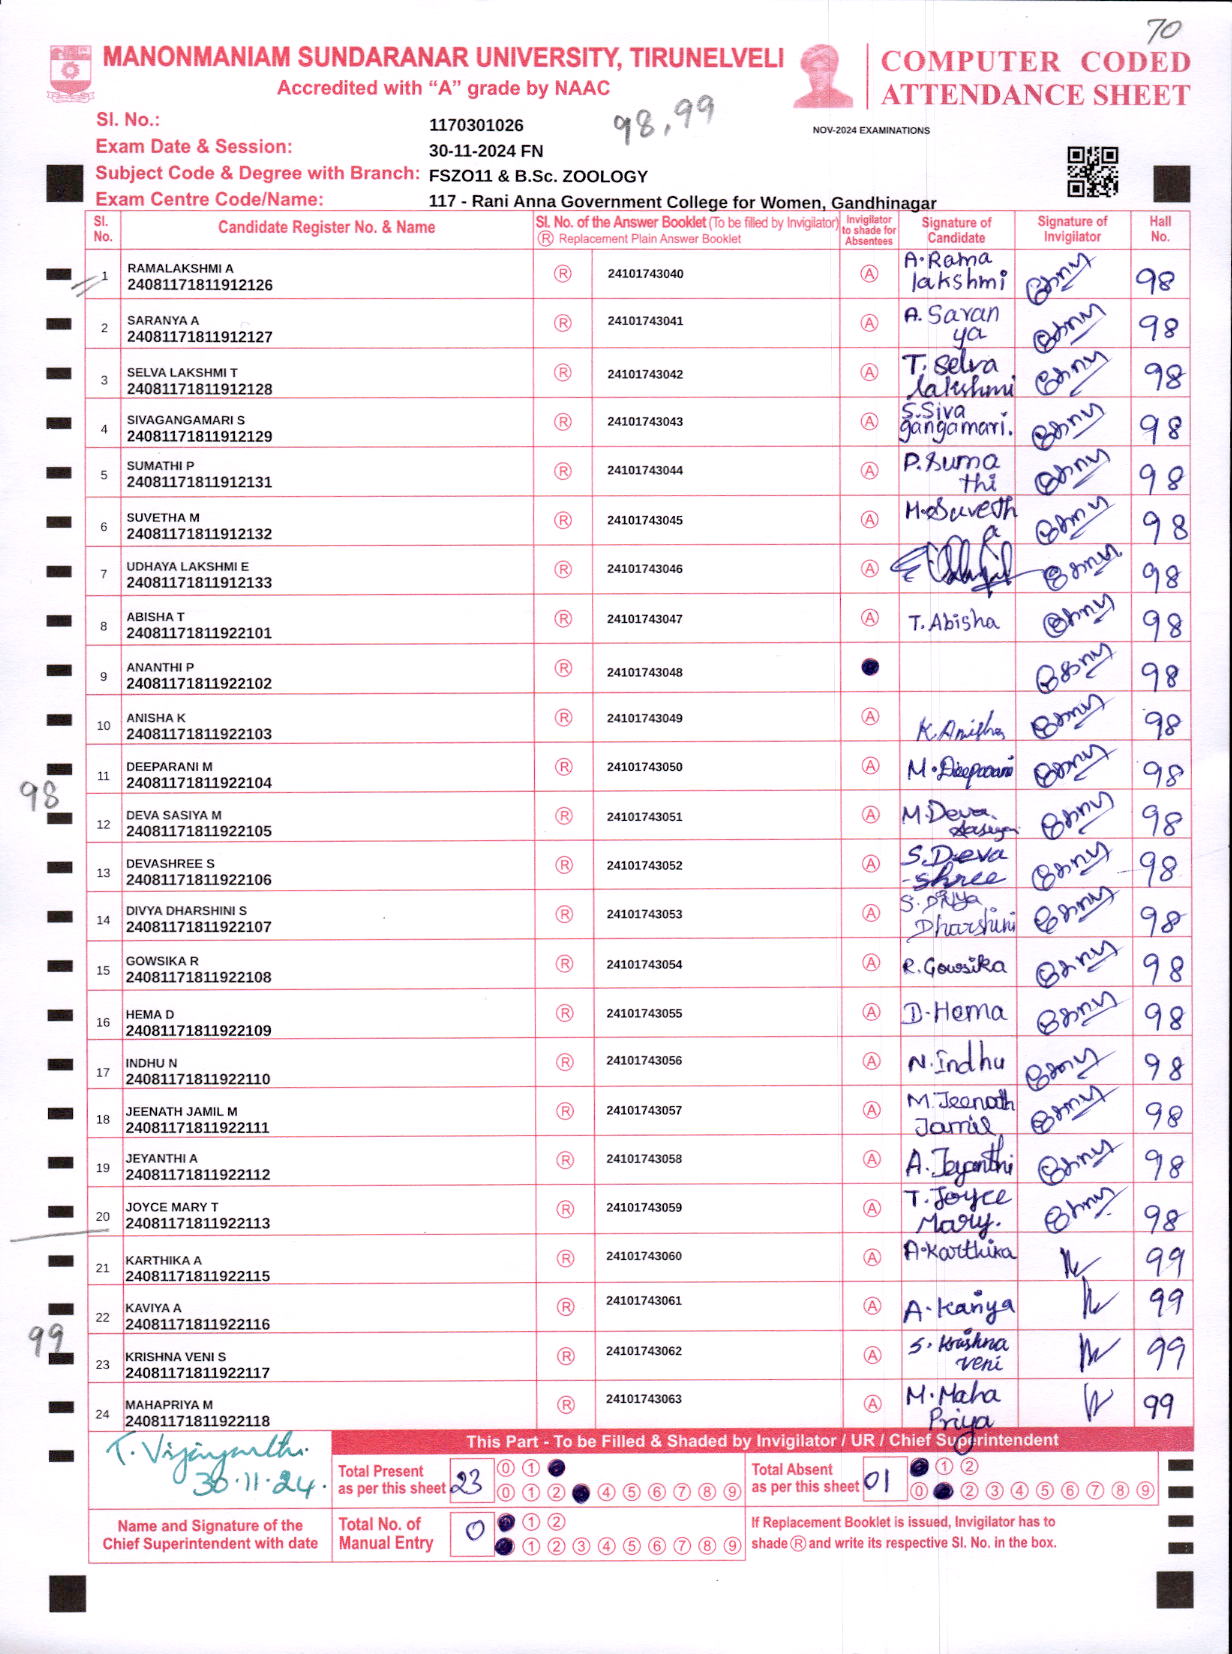 70
MANONMANIAM SUNDARANAR UNIVERSITY, TIRUNELVELI
Accredited with “A” grade by NAAC
COMPUTER CODED
ATTENDANCE SHEET
NOV-2024 EXAMINATIONS
98,99
Sl. No.: 1170301026
Exam Date & Session: 30-11-2024 FN
Subject Code & Degree with Branch: FSZO11 & B.Sc. ZOOLOGY
Exam Centre Code/Name: 117 - Rani Anna Government College for Women, Gandhinagar
Sl. No. Candidate Register No. & Name Sl. No. of the Answer Booklet (To be filled by Invigilator) Ⓡ Replacement Plain Answer Booklet Invigilator to shade for Absentees Signature of Candidate Signature of Invigilator Hall No.
1 RAMALAKSHMI A 24081171811912126 Ⓡ 24101743040 Ⓐ A.Rama lakshmi 98
2 SARANYA A 24081171811912127 Ⓡ 24101743041 Ⓐ A. Saran ya 98
3 SELVA LAKSHMI T 24081171811912128 Ⓡ 24101743042 Ⓐ T. Selva lakshmi 98
4 SIVAGANGAMARI S 24081171811912129 Ⓡ 24101743043 Ⓐ S.Siva gangamari. 98
5 SUMATHI P 24081171811912131 Ⓡ 24101743044 Ⓐ P.Suma thi 98
6 SUVETHA M 24081171811912132 Ⓡ 24101743045 Ⓐ M.Suveth a 98
7 UDHAYA LAKSHMI E 24081171811912133 Ⓡ 24101743046 Ⓐ 98
8 ABISHA T 24081171811922101 Ⓡ 24101743047 Ⓐ T. Abisha 98
9 ANANTHI P 24081171811922102 Ⓡ 24101743048 98
10 ANISHA K 24081171811922103 Ⓡ 24101743049 Ⓐ K.Anisha 98
11 DEEPARANI M 24081171811922104 Ⓡ 24101743050 Ⓐ M.Deeparani 98
98
12 DEVA SASIYA M 24081171811922105 Ⓡ 24101743051 Ⓐ M.Deva Sasiya 98
13 DEVASHREE S 24081171811922106 Ⓡ 24101743052 Ⓐ S.Deva -shree 98
14 DIVYA DHARSHINI S 24081171811922107 Ⓡ 24101743053 Ⓐ S. Divya Dharshini 98
15 GOWSIKA R 24081171811922108 Ⓡ 24101743054 Ⓐ R.Gowsika 98
16 HEMA D 24081171811922109 Ⓡ 24101743055 Ⓐ D.Hema 98
17 INDHU N 24081171811922110 Ⓡ 24101743056 Ⓐ N.Indhu 98
18 JEENATH JAMIL M 24081171811922111 Ⓡ 24101743057 Ⓐ M.Jeenath Jamil 98
19 JEYANTHI A 24081171811922112 Ⓡ 24101743058 Ⓐ A. Jeyanthi 98
20 JOYCE MARY T 24081171811922113 Ⓡ 24101743059 Ⓐ T.Joyce Mary. 98
21 KARTHIKA A 24081171811922115 Ⓡ 24101743060 Ⓐ A.Karthika 99
22 KAVIYA A 24081171811922116 Ⓡ 24101743061 Ⓐ A.Kaviya 99
99
23 KRISHNA VENI S 24081171811922117 Ⓡ 24101743062 Ⓐ S. Krishna veni 99
24 MAHAPRIYA M 24081171811922118 Ⓡ 24101743063 Ⓐ M.Maha Priya 99
30.11.24.
This Part - To be Filled & Shaded by Invigilator / UR / Chief Superintendent
Total Present as per this sheet 23 ⓪ ① ⓪ ① ② ④ ⑤ ⑥ ⑦ ⑧ ⑨
Total Absent as per this sheet 01 ① ② ⓪ ② ③ ④ ⑤ ⑥ ⑦ ⑧ ⑨
Name and Signature of the Chief Superintendent with date
Total No. of Manual Entry 0 ① ② ① ② ③ ④ ⑤ ⑥ ⑦ ⑧ ⑨
If Replacement Booklet is issued, Invigilator has to
shade Ⓡ and write its respective Sl. No. in the box.